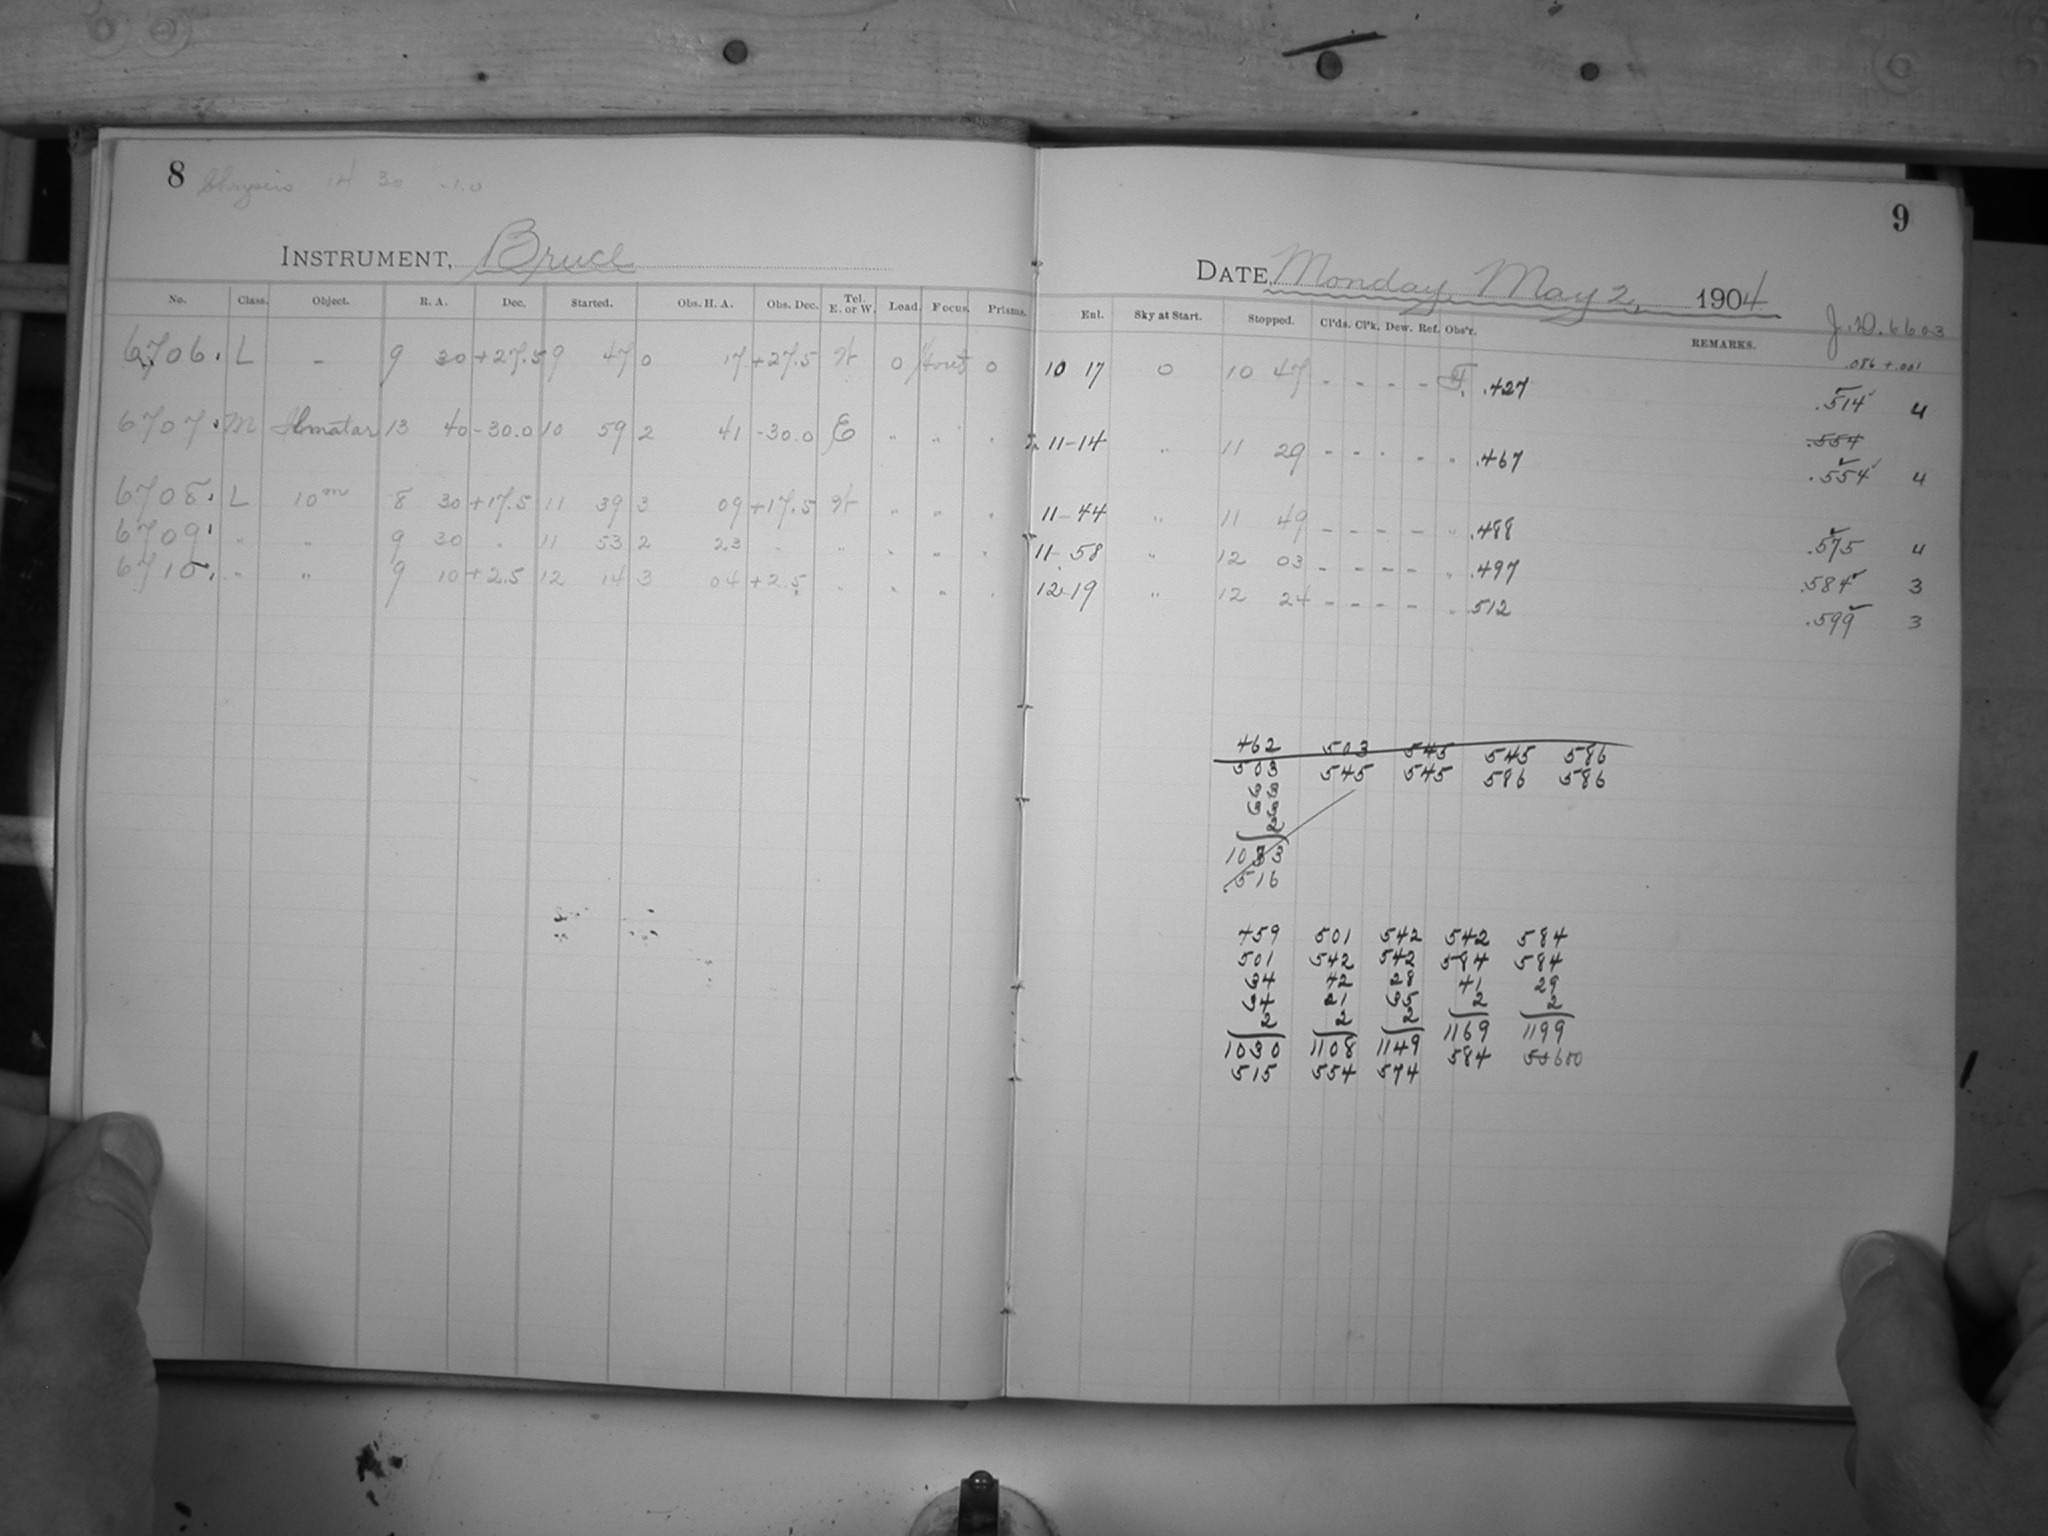 8 Chryseis 14 30 -1.0
INSTRUMENT, Bruce
No. Class. Object. R. A. Dec. Started. Obs. H. A. Obs. Dec. Tel. E. or W. Load. Focus. Prisms.
6706. L - 9 30 +27.5 9 47 0 17 +27.5 W 0 0
6707. M Ilmatar 13 40 -30.0 10 59 2 41 -30.0 E " " "
6708. L 10m 8 30 +17.5 11 39 3 09 +17.5 W " " "
6709. " " 9 30 " 11 53 2 23 " " " " "
6710. " " 9 10 +2.5 12 14 3 04 +2.5 " " " "
9
DATE, Monday, May 2, 1904
J.D. 6603
Enl. Sky at Start. Stopped. Cl'ds. Cl'k. Dew. Ref. Obs'r. REMARKS.
.086 + .001
10 17 0 10 47 - - - - F. .427 .514 4
.554
11-14 " 11 29 - - - - " .467 .554 4
11-44 " 11 49 - - - - " .488 .575 4
11-58 " 12 03 - - - - " .497 .584 3
12-19 " 12 24 - - - - " 512 .599 3
462 503 545 545 586
503 545 545 586 586
33
33
2
1033
.516
459 501 542 542 584
501 542 542 584 584
34 42 28 41 29
34 21 35 2 2
2 2 2 1169 1199
1030 1108 1149 584 600
515 554 574